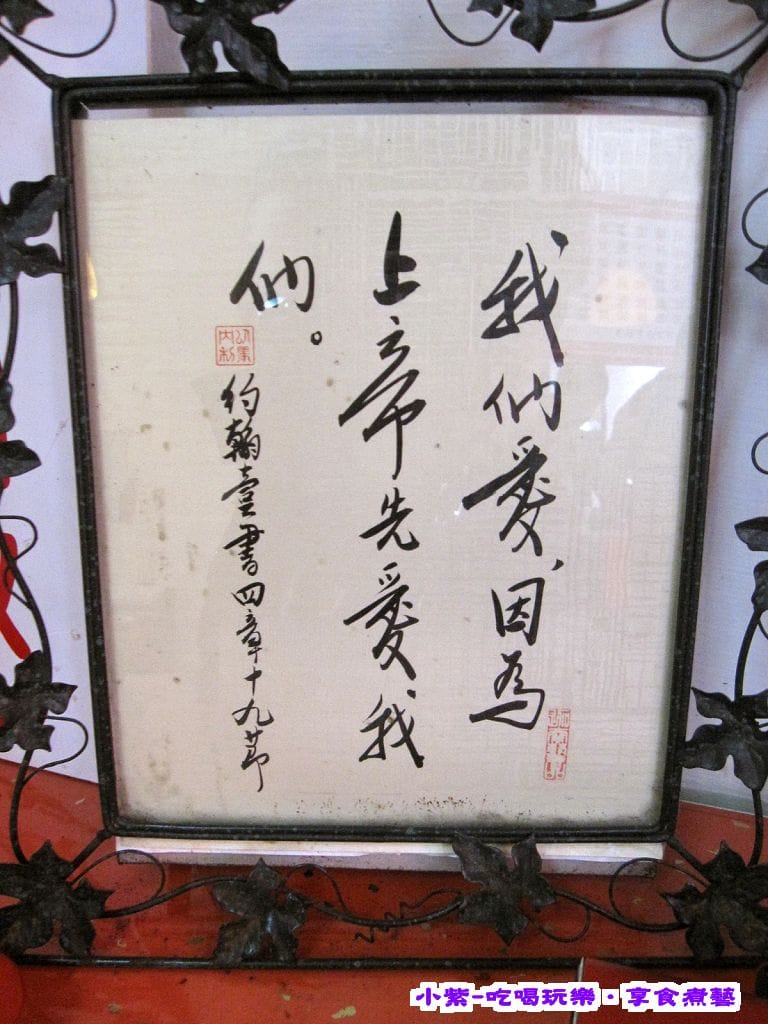 我們愛，因為
上帝先愛我
們。
約翰壹書四章十九節
小紫-吃喝玩樂・享食煮藝